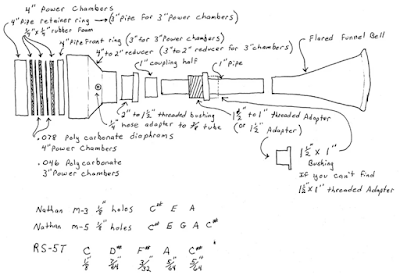 4" Power Chambers
4" Pipe retainer ring → (3" Pipe for 3" Power chambers)
1/4" x 1/4" rubber Foam
4" Pipe Front ring (3" for 3" Power chambers)
4" to 2" reducer (3" to 2" reducer for 3" chambers)
Flared Funnel Bell
1" coupling half
1" pipe
2" to 1½" threaded bushing
1/4" hose adapter to 3/8 tube
1½" to 1" threaded Adapter
(or 1½" Adapter)
.078 Poly carbonate diaphrams
4" Power Chambers
.046 Poly carbonate
3" Power chambers
1½" x 1"
Bushing
If you can't find
1½" x 1" threaded Adapter
Nathan M-3 1/8" holes C# E A
Nathan M-5 1/8" holes C# E G A C#
RS-5T C D# F# A C#
1/8 7/64 3/32 5/64 5/64